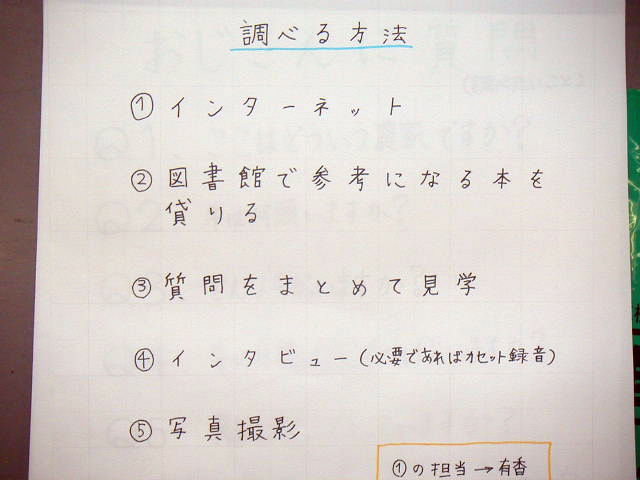 調べる方法
①インターネット
②図書館で参考になる本を
貸りる
③質問をまとめて見学
④インタビュー(必要であればカセット録音)
⑤写真撮影
①の担当→有香